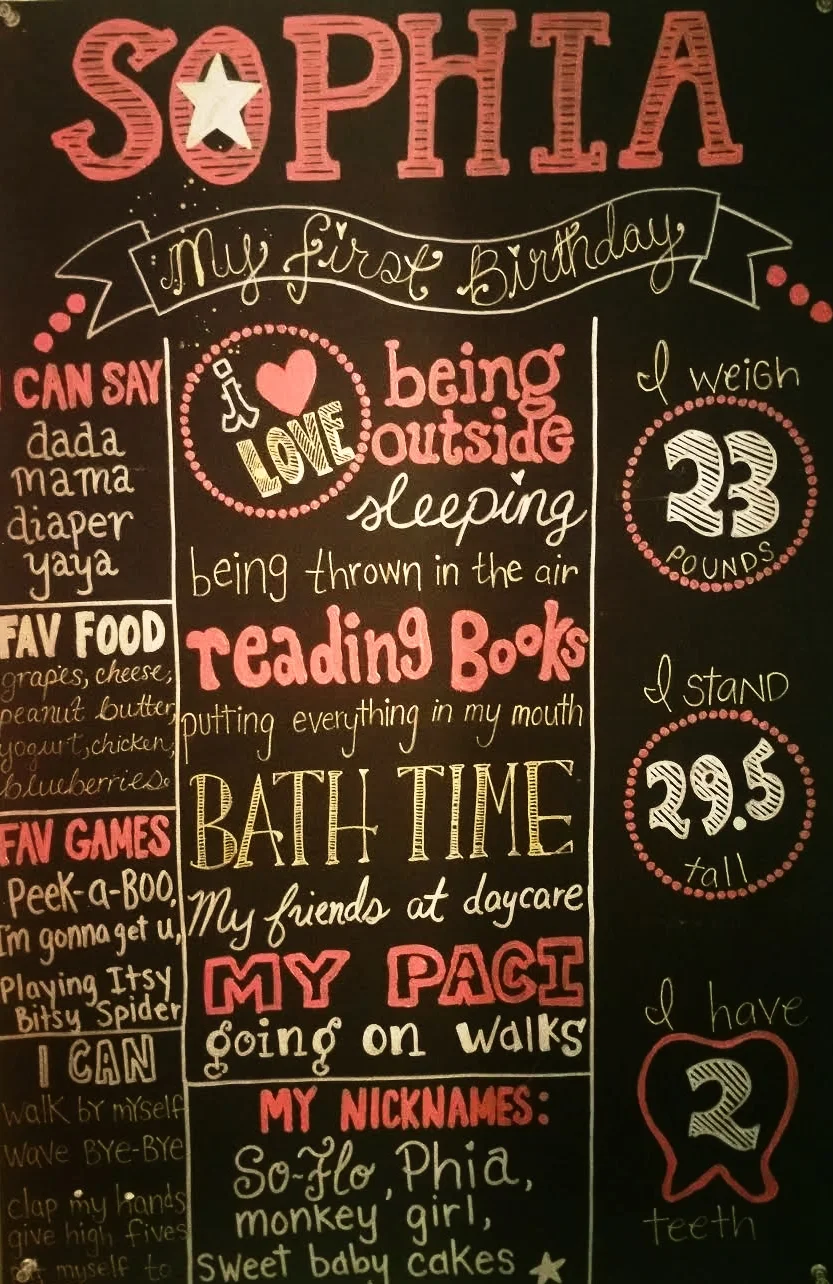 SOPHIA
My first Birthday
I CAN SAY
dada
mama
diaper
yaya
FAV FOOD
grapes, cheese,
peanut butter,
yogurt, chicken,
blueberries.
FAV GAMES
Peek-a-BOO,
I'm gonna get u,
Playing Itsy
Bitsy Spider
I CAN
walk by myself
wave BYE-BYE
clap my hands
give high fives
myself to
i LOVE
being
outside
sleeping
being thrown in the air
reading Books
putting everything in my mouth
BATH TIME
My friends at daycare
MY PACI
going on walks
MY NICKNAMES:
So-Flo, Phia,
monkey girl,
sweet baby cakes
I weigh
23
POUNDS
I STAND
29.5
tall
I have
2
teeth